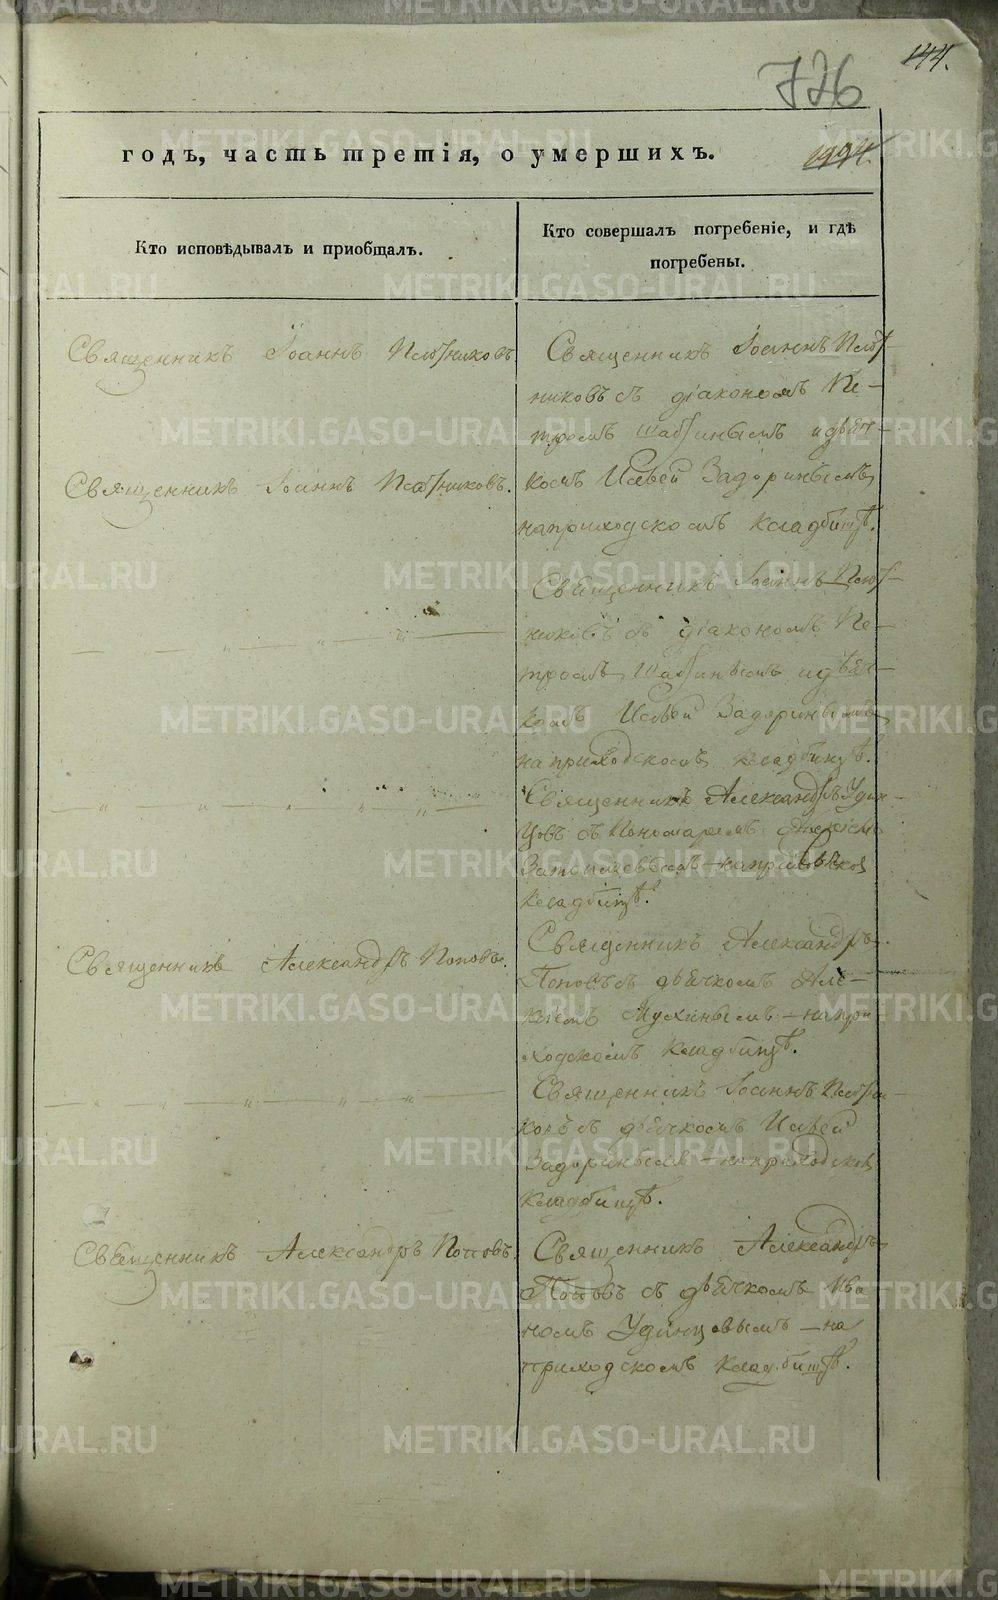 144.
726
годъ, часть третія, о умершихъ.
1994.
Кто исповѣдывалъ и приобщалъ.
Кто совершалъ погребеніе, и гдѣ
погребены.
Священникъ Іоаннъ Плотниковъ
Священникъ Іоаннъ Плот-
никовъ съ діакономъ Пе-
тромъ и дьяч-
комъ Ильей Задоринымъ
на приходскомъ кладбищѣ.
Священникъ Іоаннъ Плотниковъ.
Священникъ Іоаннъ Плот-
никовъ съ діакономъ Пе-
тромъ и дьяч-
комъ Ильей Задоринымъ
на приходскомъ кладбищѣ.
Священникъ Александръ Удин-
цовъ съ Пономаремъ
на приходском
кладбищѣ.
Священникъ Александръ Поповъ.
Священникъ Александръ
Поповъ съ дьячкомъ Але-
ксѣемъ Мухинымъ – на при-
ходскомъ кладбищѣ.
Священникъ Іоаннъ Плотни-
ковъ съ дьячкомъ Ильей
Задоринымъ – на приходском
кладбищѣ.
Священникъ Александръ Поповъ.
Священникъ Александръ
Поповъ съ дьячкомъ Ива
номъ Удинцовымъ – на
приходскомъ кладбищѣ.
METRIKI.GASO-URAL.RU